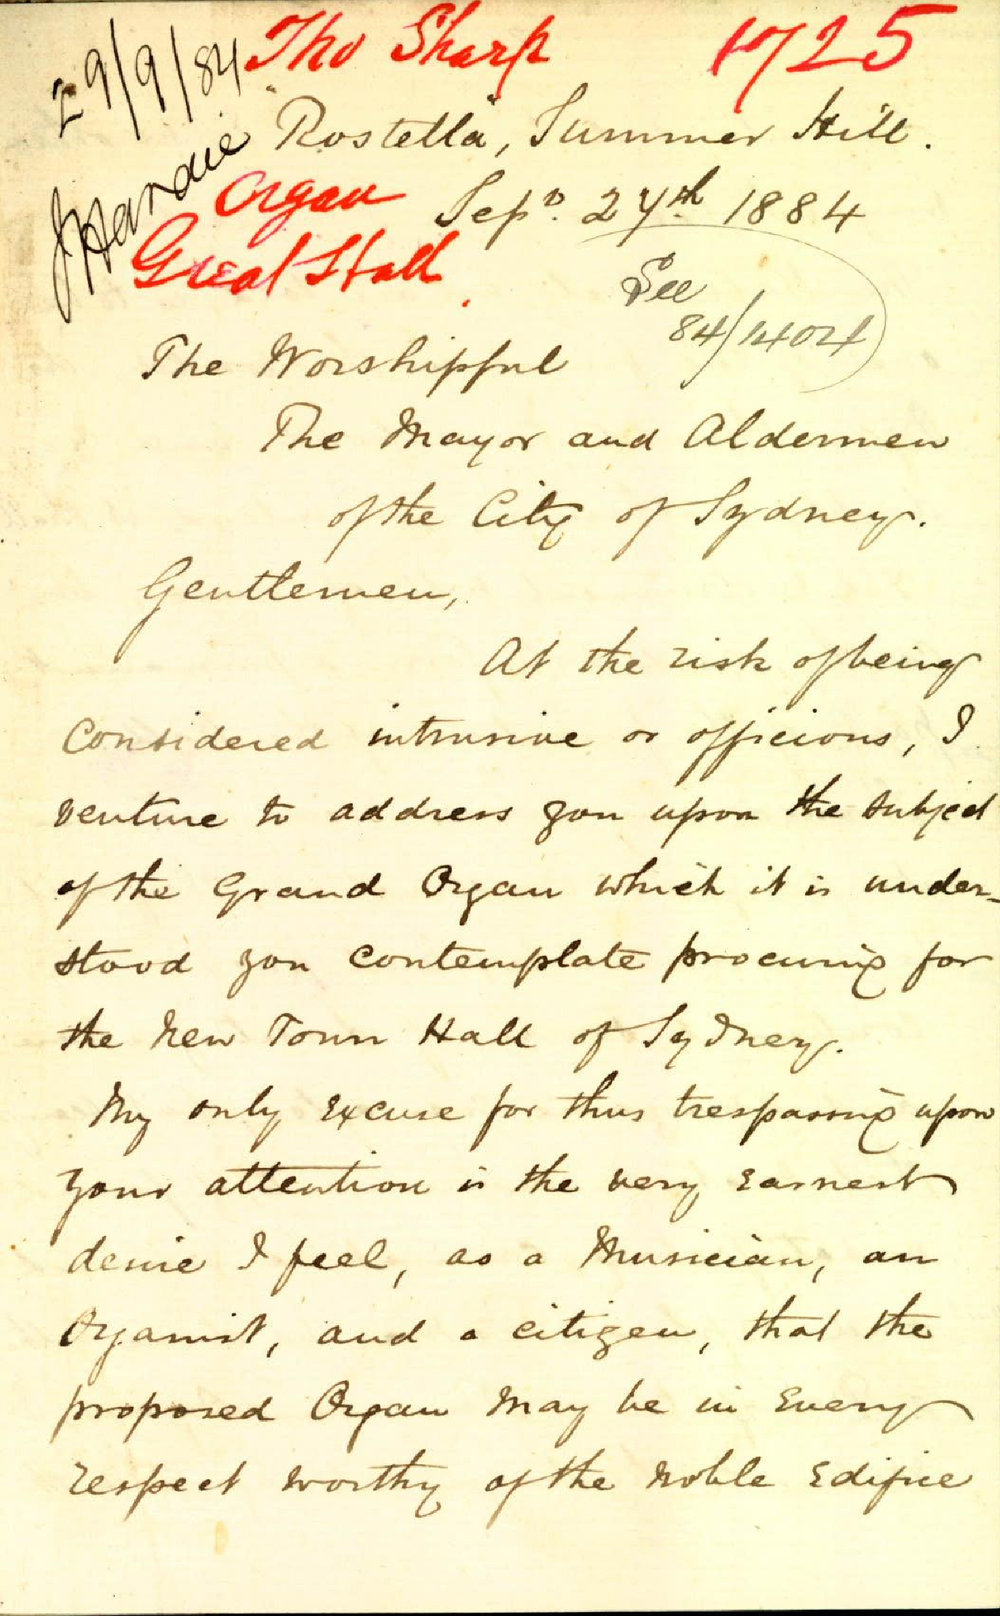 29/9/84
Tho Sharp
1725
J Hardie
"Rostella", Summer Hill.
Organ
Great Hall
Sep^r. 27th 1884
See
84/1404
The Worshipful
The Mayor and Aldermen
of the City of Sydney.
Gentlemen,
At the risk of being
considered intrusive or officious, I
venture to address you upon the subject
of the Grand Organ which it is under-
stood you contemplate procuring for
the New Town Hall of Sydney.
My only excuse for thus trespassing upon
your attention is the very earnest
desire I feel, as a Musician, an
Organist, and a citizen, that the
proposed Organ may be in every
respect worthy of the noble edifice